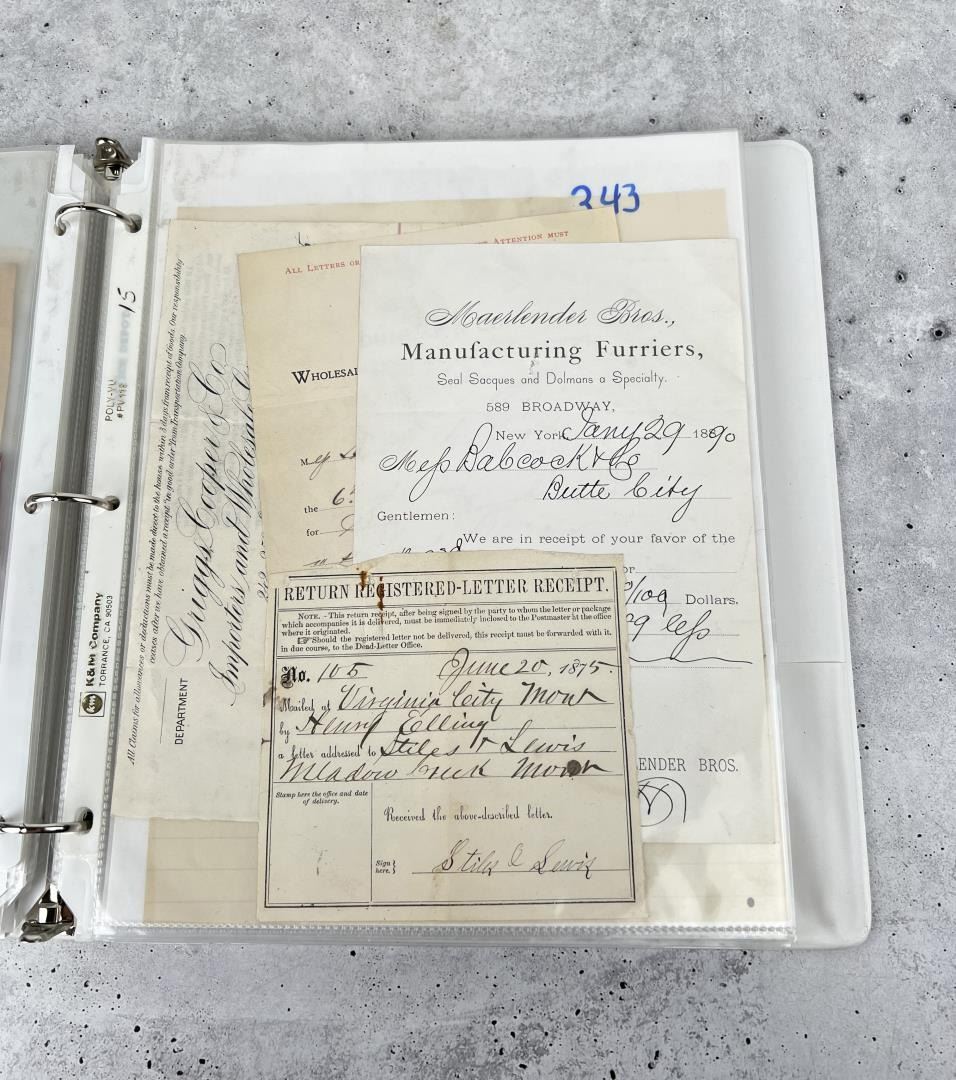 343
15
POLY-VU
#PV118
K&M Company
TORRANCE, CA 90503
km
All Claims for allowances or deductions must be made direct to the house within 3 days from receipt of goods. Our responsibility
ceases after we have obtained a receipt "in good order" from Transportation Company.
Griggs, Cooper & Co
Importers and Wholesale
DEPARTMENT
All Letters or
Attention must
Wholesal
M
the
for
Maerlender Bros.,
Manufacturing Furriers,
Seal Sacques and Dolmans a Specialty.
589 BROADWAY,
New York, Jany 29 1890
Mess Babcock & Co
Butte City
Gentlemen:
We are in receipt of your favor of the
or
/100 Dollars.
LENDER BROS.
RETURN REGISTERED-LETTER RECEIPT.
NOTE. - This return receipt, after being signed by the party to whom the letter or package
which accompanies it is delivered, must be immediately inclosed to the Postmaster at the office
where it originated.
☞ Should the registered letter not be delivered, this receipt must be forwarded with it,
in due course, to the Dead-Letter Office.
No. 105 June 20, 1875.
Mailed at Virginia City Mont
by Henry Elling
a letter addressed to Stiles & Lewis
Meadow Creek Mont
Stamp here the office and date
of delivery.
Received the above-described letter.
Sign
here. }
Stiles & Lewis